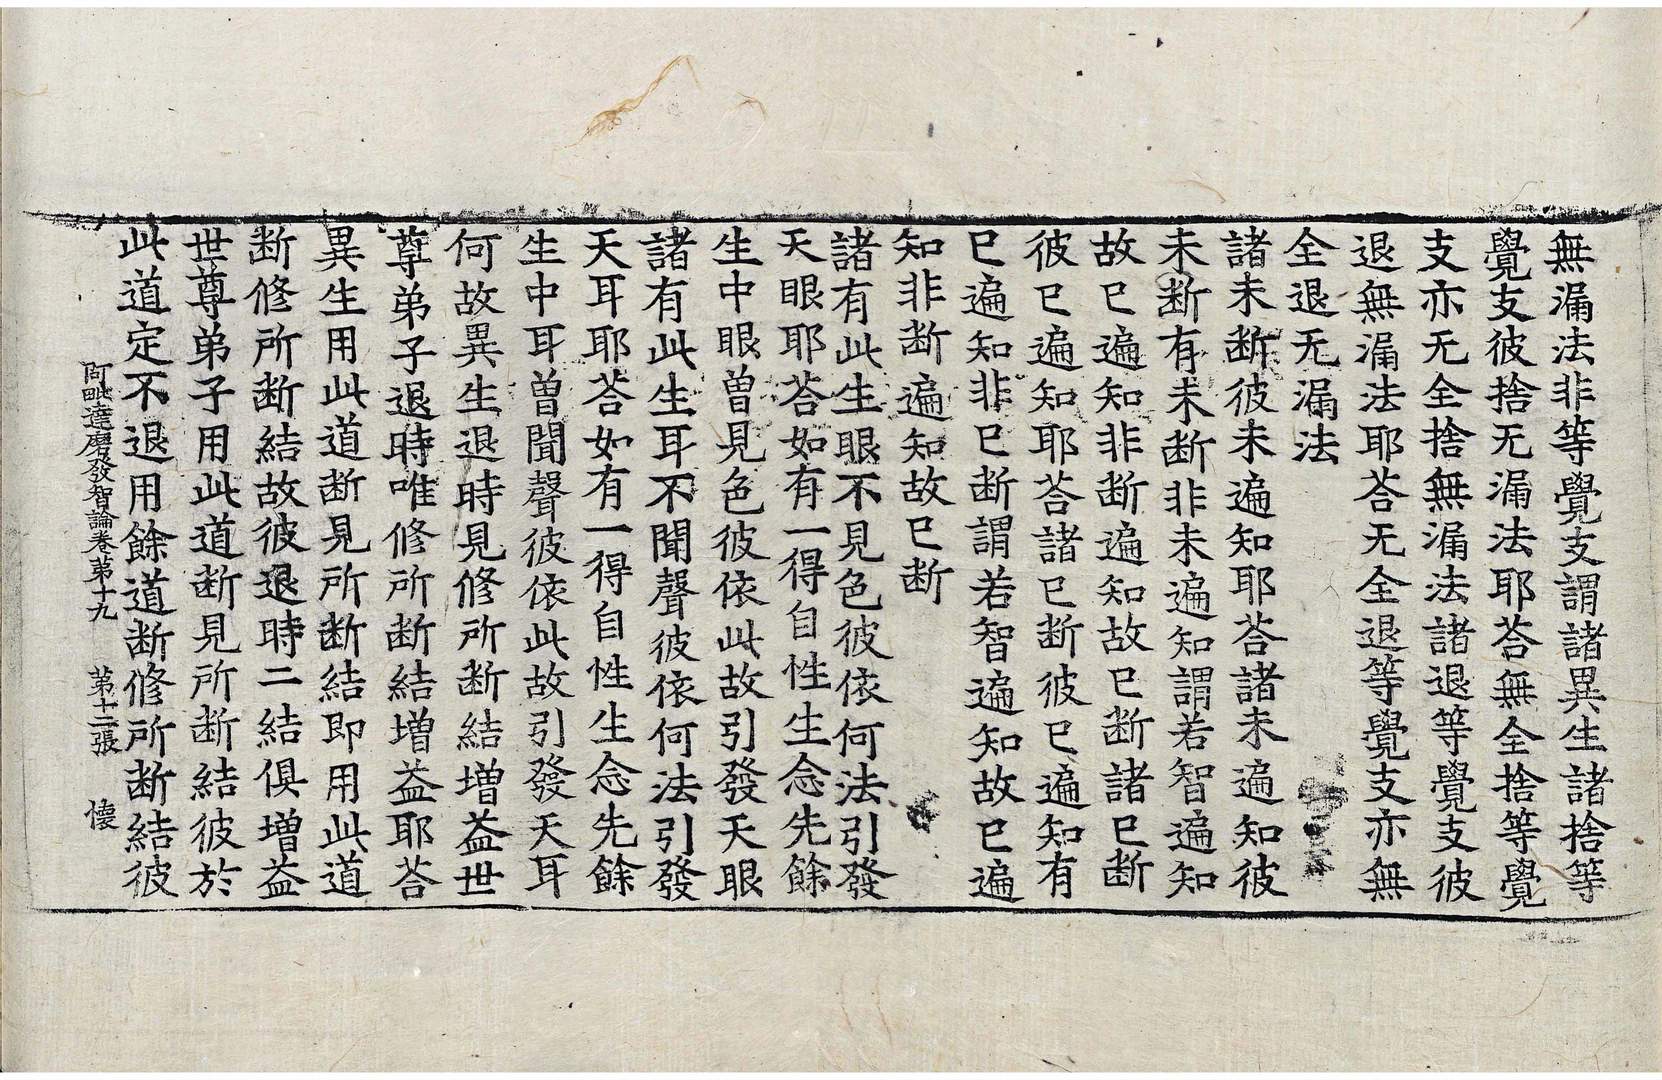 無漏法非等覺支謂諸異生諸捨等
覺支彼捨无漏法耶荅無全捨等覺
支亦无全捨無漏法諸退等覺支彼
退無漏法耶荅无全退等覺支亦無
全退无漏法
諸未断彼未遍知耶荅諸未遍知彼
未断有未断非未遍知謂若智遍知
故已遍知非断遍知故已断諸已断
彼已遍知耶荅諸已断彼已遍知有
已遍知非已断謂若智遍知故已遍
知非断遍知故已断
諸有此生眼不見色彼依何法引發
天眼耶荅如有一得自性生念先餘
生中眼曽見色彼依此故引發天眼
諸有此生耳不聞聲彼依何法引發
天耳耶荅如有一得自性生念先餘
生中耳曽聞聲彼依此故引發天耳
何故異生退時見修所断結増益世
尊弟子退時唯修所断結増益耶荅
異生用此道断見所断結即用此道
断修所断結故彼退時二結俱増益
世尊弟子用此道断見所断結彼於
此道定不退用餘道断修所断結彼
阿毗達磨發智論卷第十九 第十二張 懷